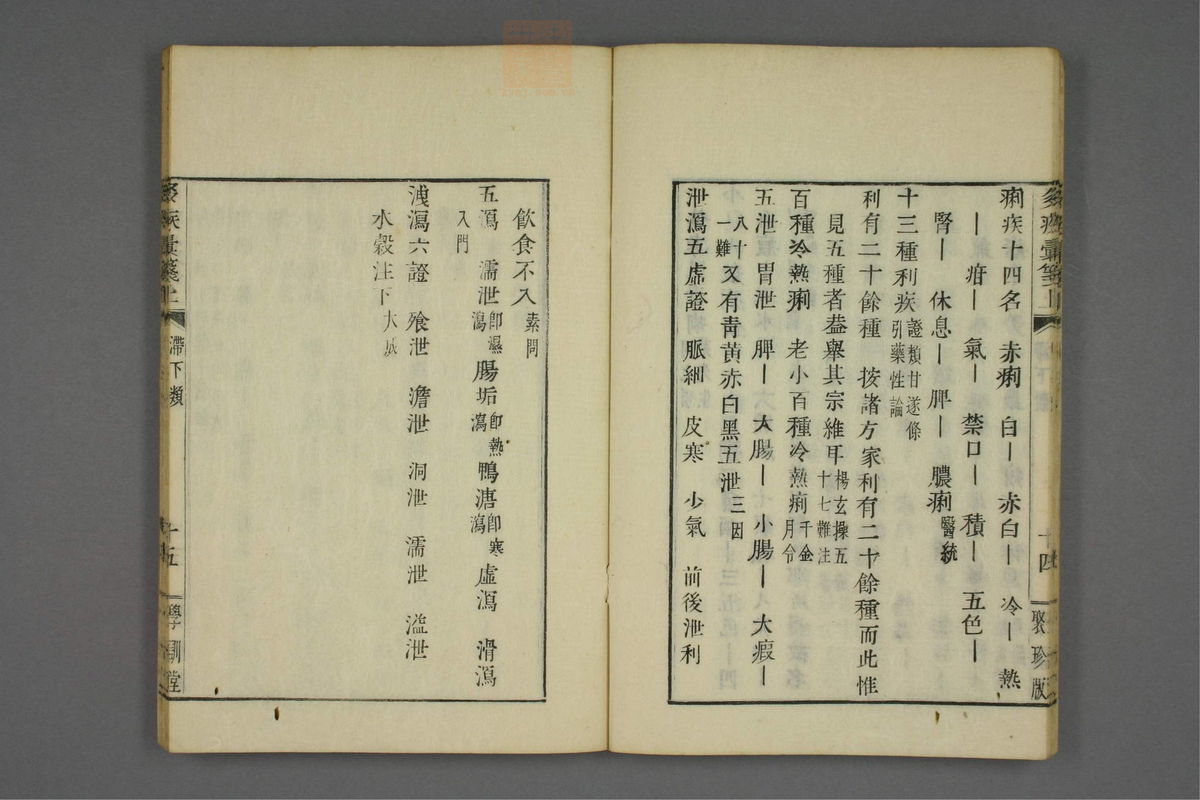 痢疾十四名 赤痢 白｜ 赤白｜ 冷｜ 熱
｜ 疳｜ 氣｜ 禁口｜ 積｜ 五色｜
腎｜ 休息｜ 脾｜ 膿痢 醫統
十三種利疾 證類甘遂條引藥性論
利有二十餘種 按諸方家利有二十餘種而此惟
見五種者葢舉其宗維耳 楊玄操五十七難注
百種冷熱痢 老小百種冷熱痢 千金月令
五泄 胃泄 脾｜ 大腸｜ 小腸｜ 大瘕｜
八十一難 又有靑黄赤白黑五泄 三因
泄瀉五虛證 脈細 皮寒 少氣 前後泄利
聚珍版
十四
飲食不入 素問
五瀉 濡泄 卽濕瀉 腸垢 卽熱瀉 鴨溏 卽寒瀉 虛瀉 滑瀉
入門
洩瀉六證 飱泄 澹泄 洞泄 濡泄 溢泄
水穀注下 大成
滯下類
十五
學訓堂